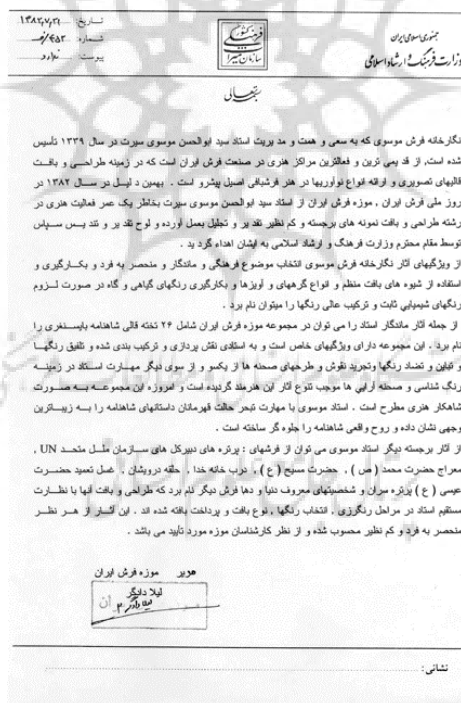 جمهوری اسلامی ایران
وزارت فرهنگ و ارشاد اسلامی
سازمان میراث فرهنگی کشور
تاریخ: ۱۳۸۲,۷,۲۱
شماره: ۴۵۲/
پیوست: ندارد
بسمه تعالی
نگارخانه فرش موسوی که به سعی و همت و مد یریت استاد سید ابوالحسن موسوی سیرت در سال ۱۳۳۹ تأسیس
شده است, از قد یمی ترین و فعالترین مراکز هنری در صنعت فرش ایران است که در زمینه طراحی و بافت
قالیهای تصویری و ارائه انواع نوآوریها در هنر فرشبافی اصیل پیشرو است . بهمین د لیل در سال ۱۳۸۲ در
روز ملی فرش ایران , موزه فرش ایران از استاد سید ابوالحسن موسوی سیرت بخاطر یک عمر فعالیت هنری در
رشته طراحی و بافت نمونه های برجسته و کم نظیر تقد یر و تجلیل بعمل آورده و لوح تقد یر و تند یس سپاس
توسط مقام محترم وزارت فرهنگ و ارشاد اسلامی به ایشان اهداء گرد ید .
از ویژگیهای آثار نگارخانه فرش موسوی انتخاب موضوع فرهنگی و ماندگار و منحصر به فرد و بکارگیری و
استفاده از شیوه های بافت منظم و انواع گرههای و آویزها و بکارگیری رنگهای گیاهی و گاه در صورت لزوم
رنگهای شیمیایی ثابت و ترکیب عالی رنگها را میتوان نام برد .
از جمله آثار ماندگار استاد را می توان در مجموعه موزه فرش ایران شامل ۲۶ تخته قالی شاهنامه بایسنغری را
نام برد . این مجموعه دارای ویژگیهای خاص است و به استادی نقش پردازی و ترکیب بندی شده و تلفیق رنگها
و تباین و تضاد رنگها وتجرید نقوش و طرحهای صحنه ها از یکسو و از سوی دیگر مهارت استاد در زمینه
رنگ شناسی و صحنه آرایی ها موجب تنوع آثار این هنرمند گردیده است و امروزه این مجموعه به صورت
شاهکار هنری مطرح است . استاد موسوی با مهارت تبحر حالت قهرمانان داستانهای شاهنامه را به زیباترین
وجهی نشان داده و روح واقعی شاهنامه را جلوه گر ساخته است .
از آثار برجسته دیگر استاد موسوی می توان از فرشهای : پرتره های دبیرکل های سازمان ملل متحد UN ,
معراج حضرت محمد ( ص ) , حضرت مسیح ( ع ) , درب خانه خدا , حلقه درویشان , غسل تعمید حضرت
عیسی ( ع ) پرتره سران و شخصیتهای معروف دنیا و دهها فرش دیگر نام برد که طراحی و بافت آنها با نظارت
مستقیم استاد در مراحل رنگرزی , انتخاب رنگها , نوع بافت و پرداخت بافته شده اند . این آثار از هر نظر
منحصر به فرد و کم نظیر محسوب شده و از نظر کارشناسان موزه مورد تأیید می باشد .
مدیر موزه فرش ایران
لیلا دادگر
نشانی :